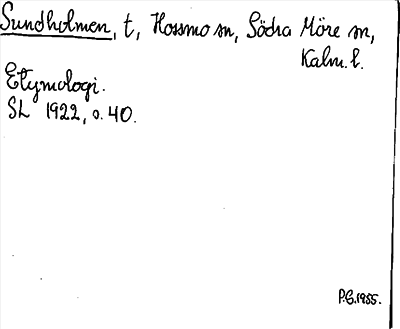 Sundholmen, t, Hossmo sn, Södra Möre sn,
Kalm. l.
Etymologi.
SL 1922, s. 40.
P.G. 1955.